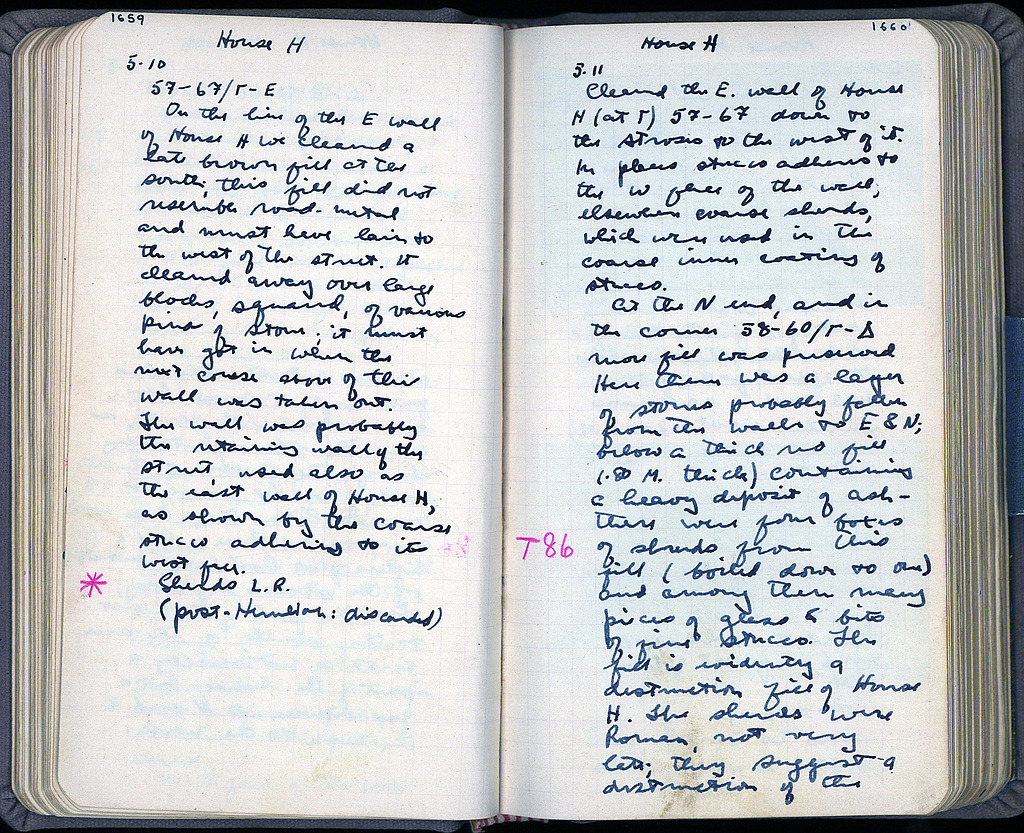 1659
House H
5-10
57-67/Γ-E
On the line of the E wall
of House H we cleared a
late brown fill at the
south; this fill did not
resemble road-metal
and must have lain to
the west of the street. It
cleared away over large
blocks, squared, of various
kinds of stone; it must
have got in when the
next course above of this
wall was taken out.
The wall was probably
the retaining wall of the
street used also as
the east wall of House H,
as shown by the coarse
stucco adhering to its
west face.
* Sherds L.R.
(post-Herulian: discarded)
1660
House H
5.11
Cleared the E. wall of House
H (at Γ) 57-67 down to
the strosis to the west of it.
In places stucco adheres to
the W face of the wall;
elsewhere coarse sherds,
which were used in the
coarse inner coating of
stucco.
At the N end, and in
the corner 58-60/Γ-Δ
more fill was preserved
Here there was a layer
of stones probably fallen
from the walls to E & N;
below a thick red fill
(.80 M. thick) containing
a heavy deposit of ash-
T86 there were four boxes
of sherds from this
fill (boiled down to one)
and among them many
pieces of glass & bits
of fine stucco. The
fill is evidently a
destruction fill of House
H. The sherds were
Roman, not very
late; they suggest a
destruction of the